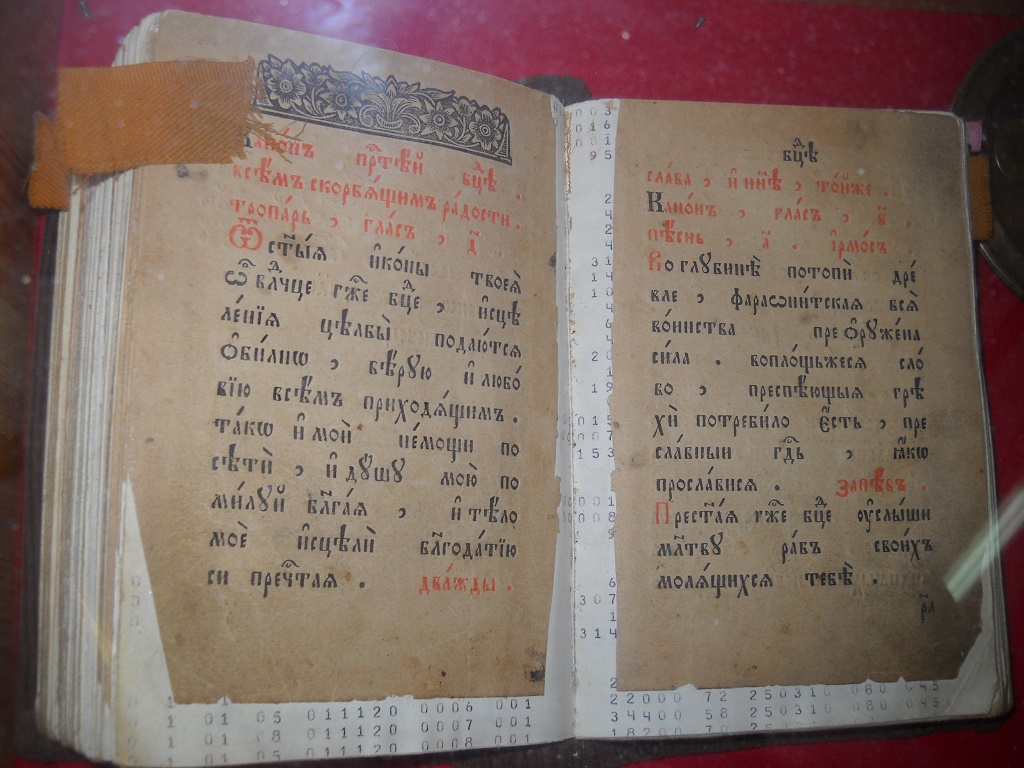 Канѡ́нъ прⷭ҇тѣ́й бц҃ѣ .
всѣ́мъ скорбѧ́щимъ ра́дости .
тропа́рь , гла́съ , д҃ .
Ѿ ст҃ы́ѧ и҆ко́ны твоеѧ̀
ѽ влⷣчце гж҃е бц҃е , и҆сцѣ
ле́нїѧ цѣльбы̀ подаю́тсѧ
ѻ҆би́лнѡ , вѣ́рую и҆ любо́
вїю всѣ́мъ приходѧ́щимъ .
та́кѡ и҆ мои̑ не́мощи по
сѣтѝ , и҆ дꙋ́шꙋ мою̀ по
ми́лꙋй бл҃га́ѧ , и҆ тѣ́ло
моѐ и҆сцѣлѝ бл҃года́тїю
си пречⷭ҇таѧ . два́жды .
бц҃ѣ
сла́ва , и҆ нн҃ѣ , то́йже .
Канѡ́нъ , гла́съ , в҃ .
пѣ́снь , а҃ . і҆рмо́съ .
Во глꙋбинѣ̀ потопѝ дре́
вле , фараѡни́тскаѧ всѧ̑
во́инства преѻ҆рꙋже́на
си́ла . вопло́щьжесѧ сло́
во , преспѣ́ющыѧ грѣ
хѝ потреби́ло є҆́сть , пре
сла́вный гдⷭ҇ь , ꙗ҆́кѡ
просла́висѧ . запѣ́въ .
Прест҃а́ѧ гж҃е бц҃е ᲂу҆слы́ши
мл҃твꙋ ра́бъ свои́хъ
молѧ́щихсѧ тебѣ̀ .
рл
1 01 05 011120 0006 001
1 01 08 011120 0007 001
1 01 05 011120 0008 001
22000 72 250310 080 045
34400 58 250310 080 045
18200